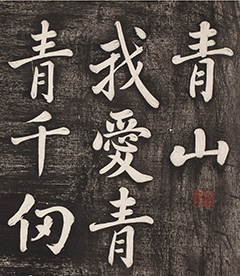 青山
我愛青
青千仞